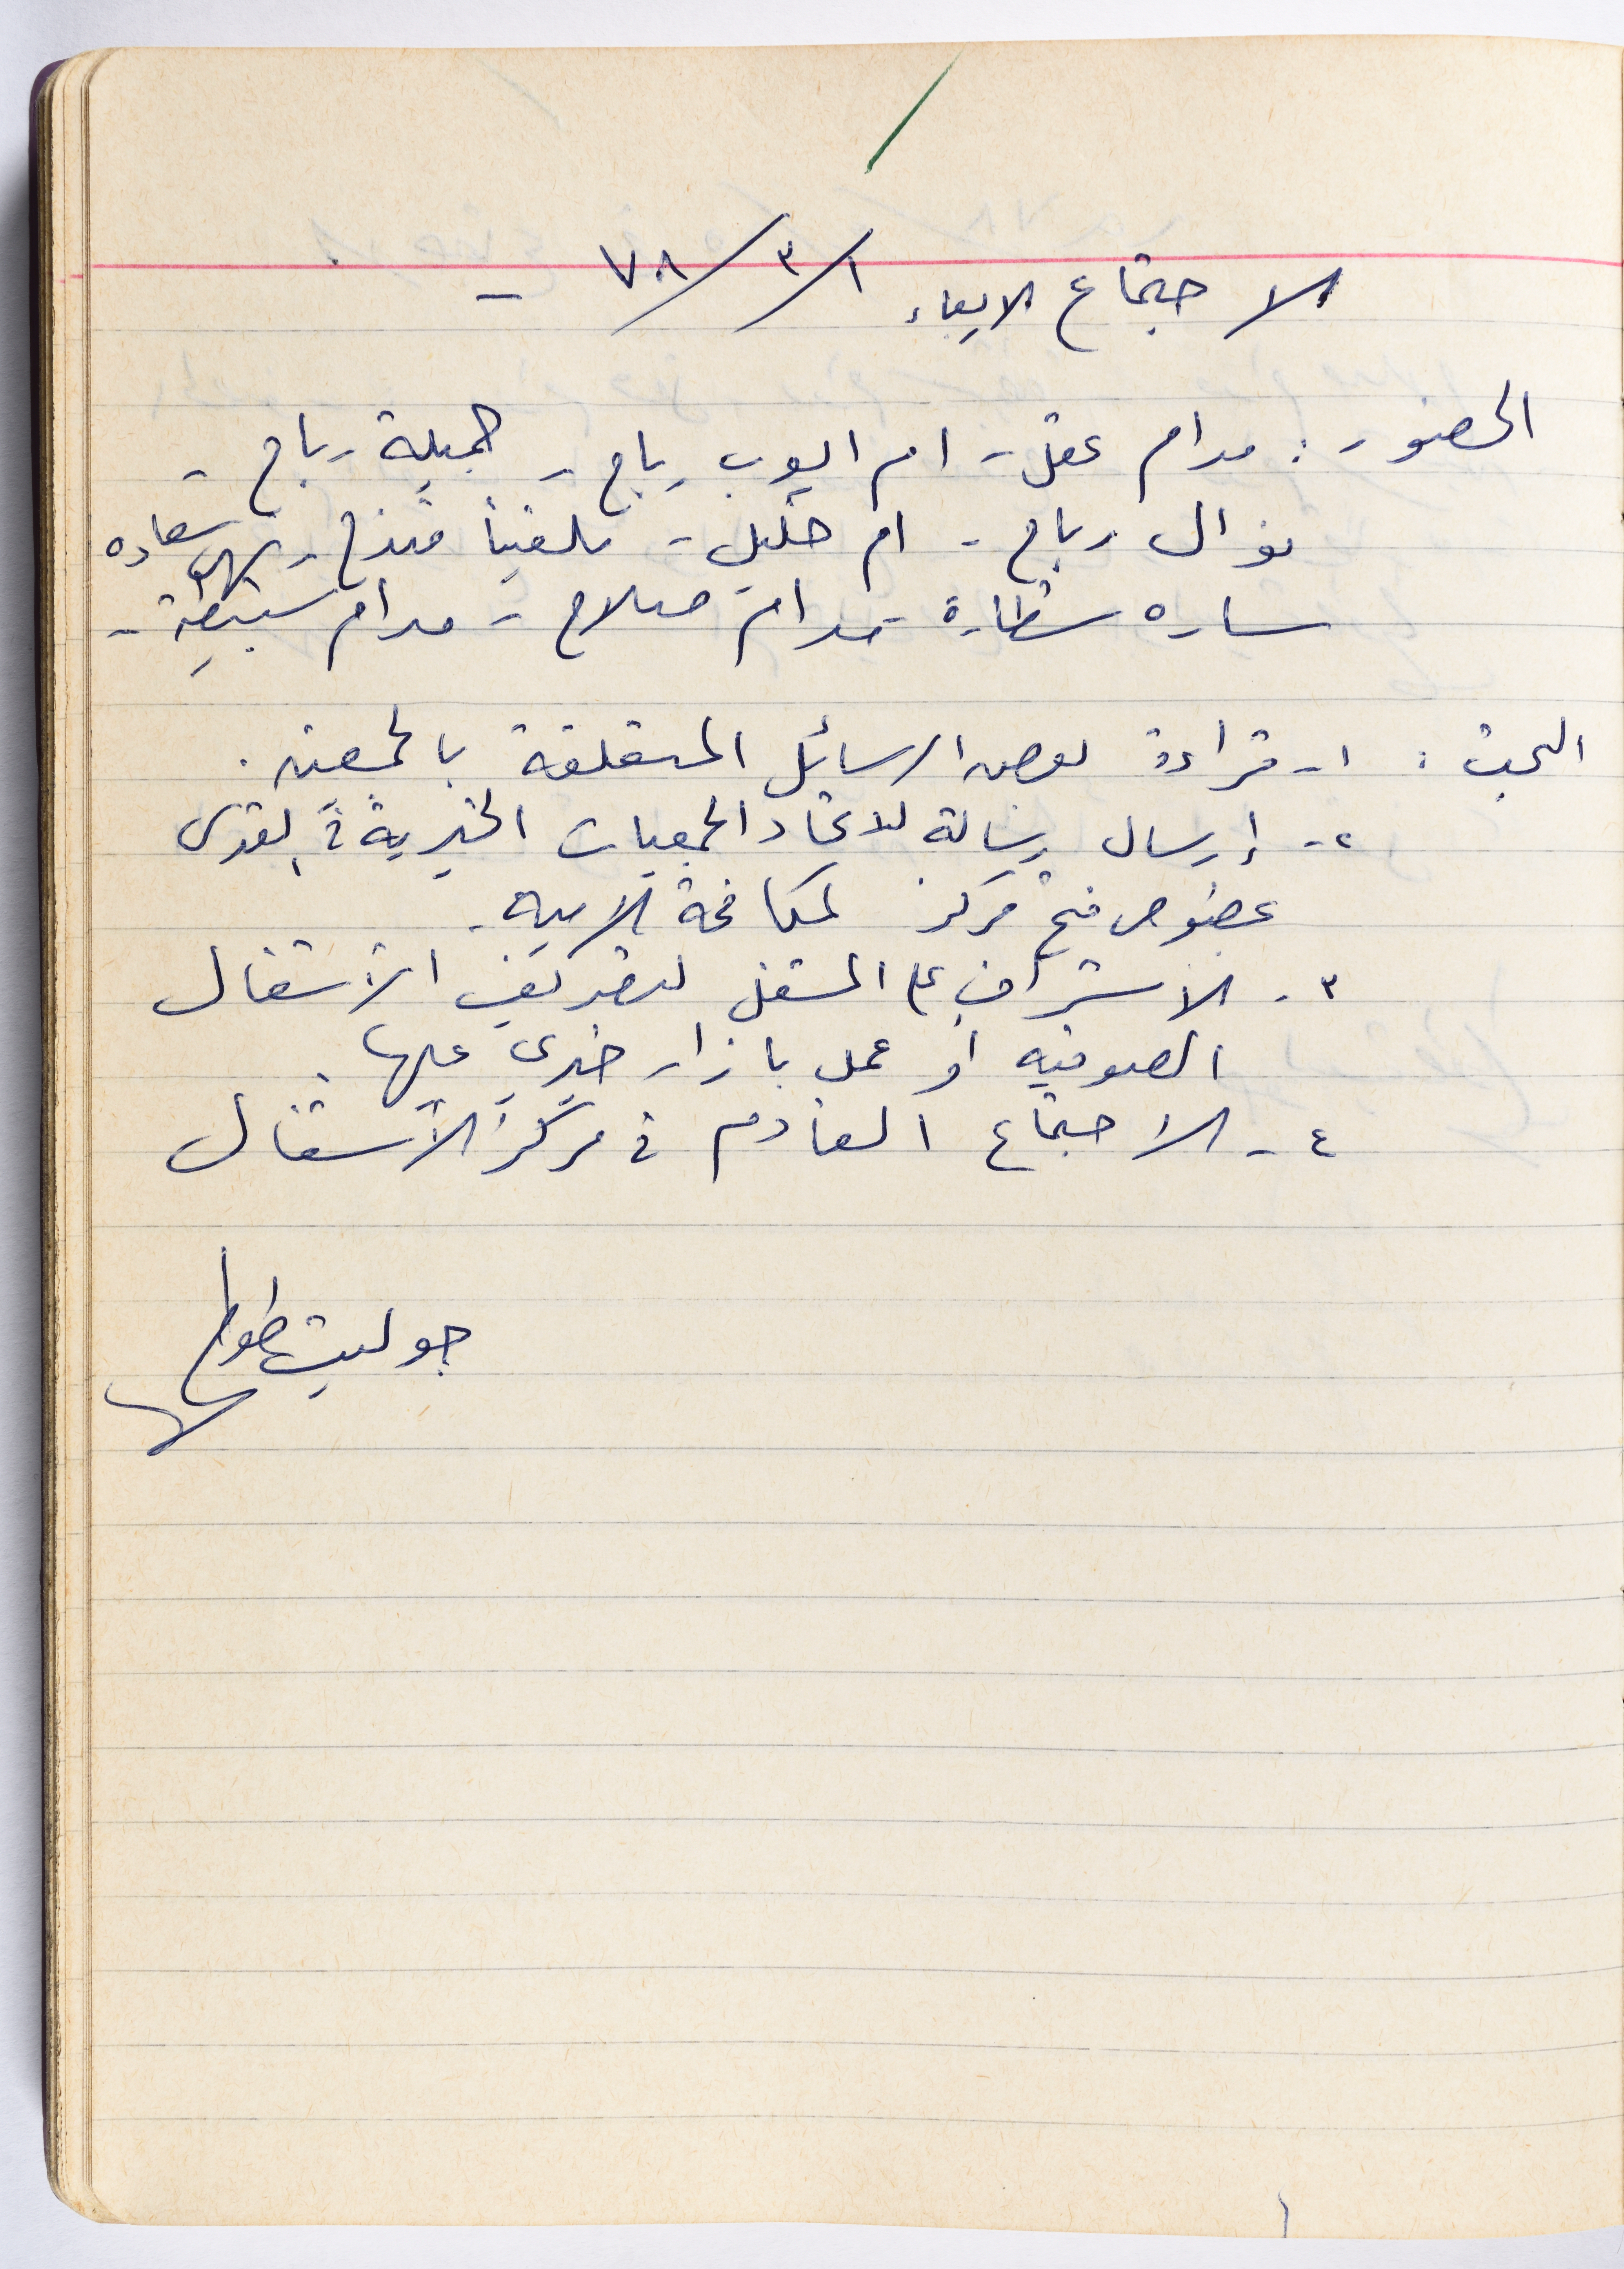 الاجتماع الاربعاء ١/٣/٧٨ -
الحضور : مدام عقل - ام ايوب رباح - جميلة رباح -
نوال رباح - ام خليل - ملفينا فتذح - نهى سعاده
ساره شطارة - مدام صلاح - مدام سبيطة -
البحث : ١- قراءة بعض الرسائل المتعلقة بالجمعيه .
٢- إرسال رسالة للاتحاد الجمعيات الخيرية في القدس
بخصوص فتح مركز لمكافحة الاميه .
٣- الاشراف على المشغل لتصريف الأشغال
الصوفيه أو عمل بازار خيري عليها .
٤- الاجتماع القادم في مركز الأشغال
جوليت